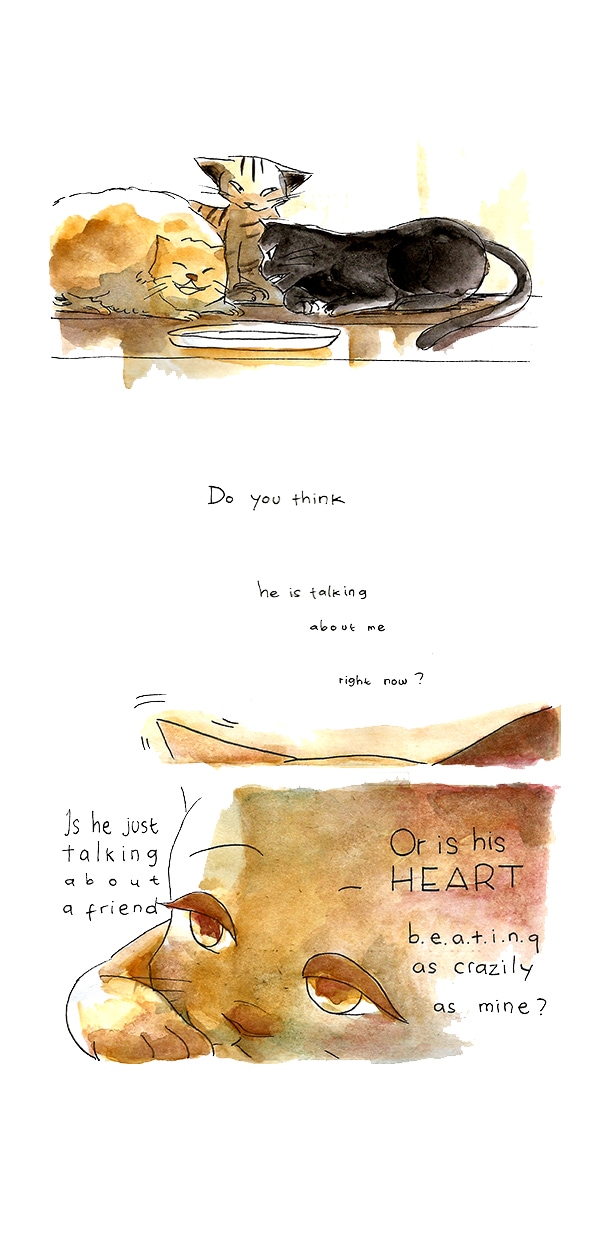 Do you think
he is talking
about me
right now?
Is he just
talking
about
a friend
Or is his
HEART
b.e.a.t.i.n.g
as crazily
as mine?